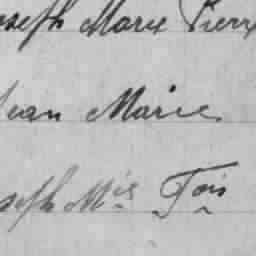 oseph Marie Pierre
Jean Marie
oseph Mie Fois